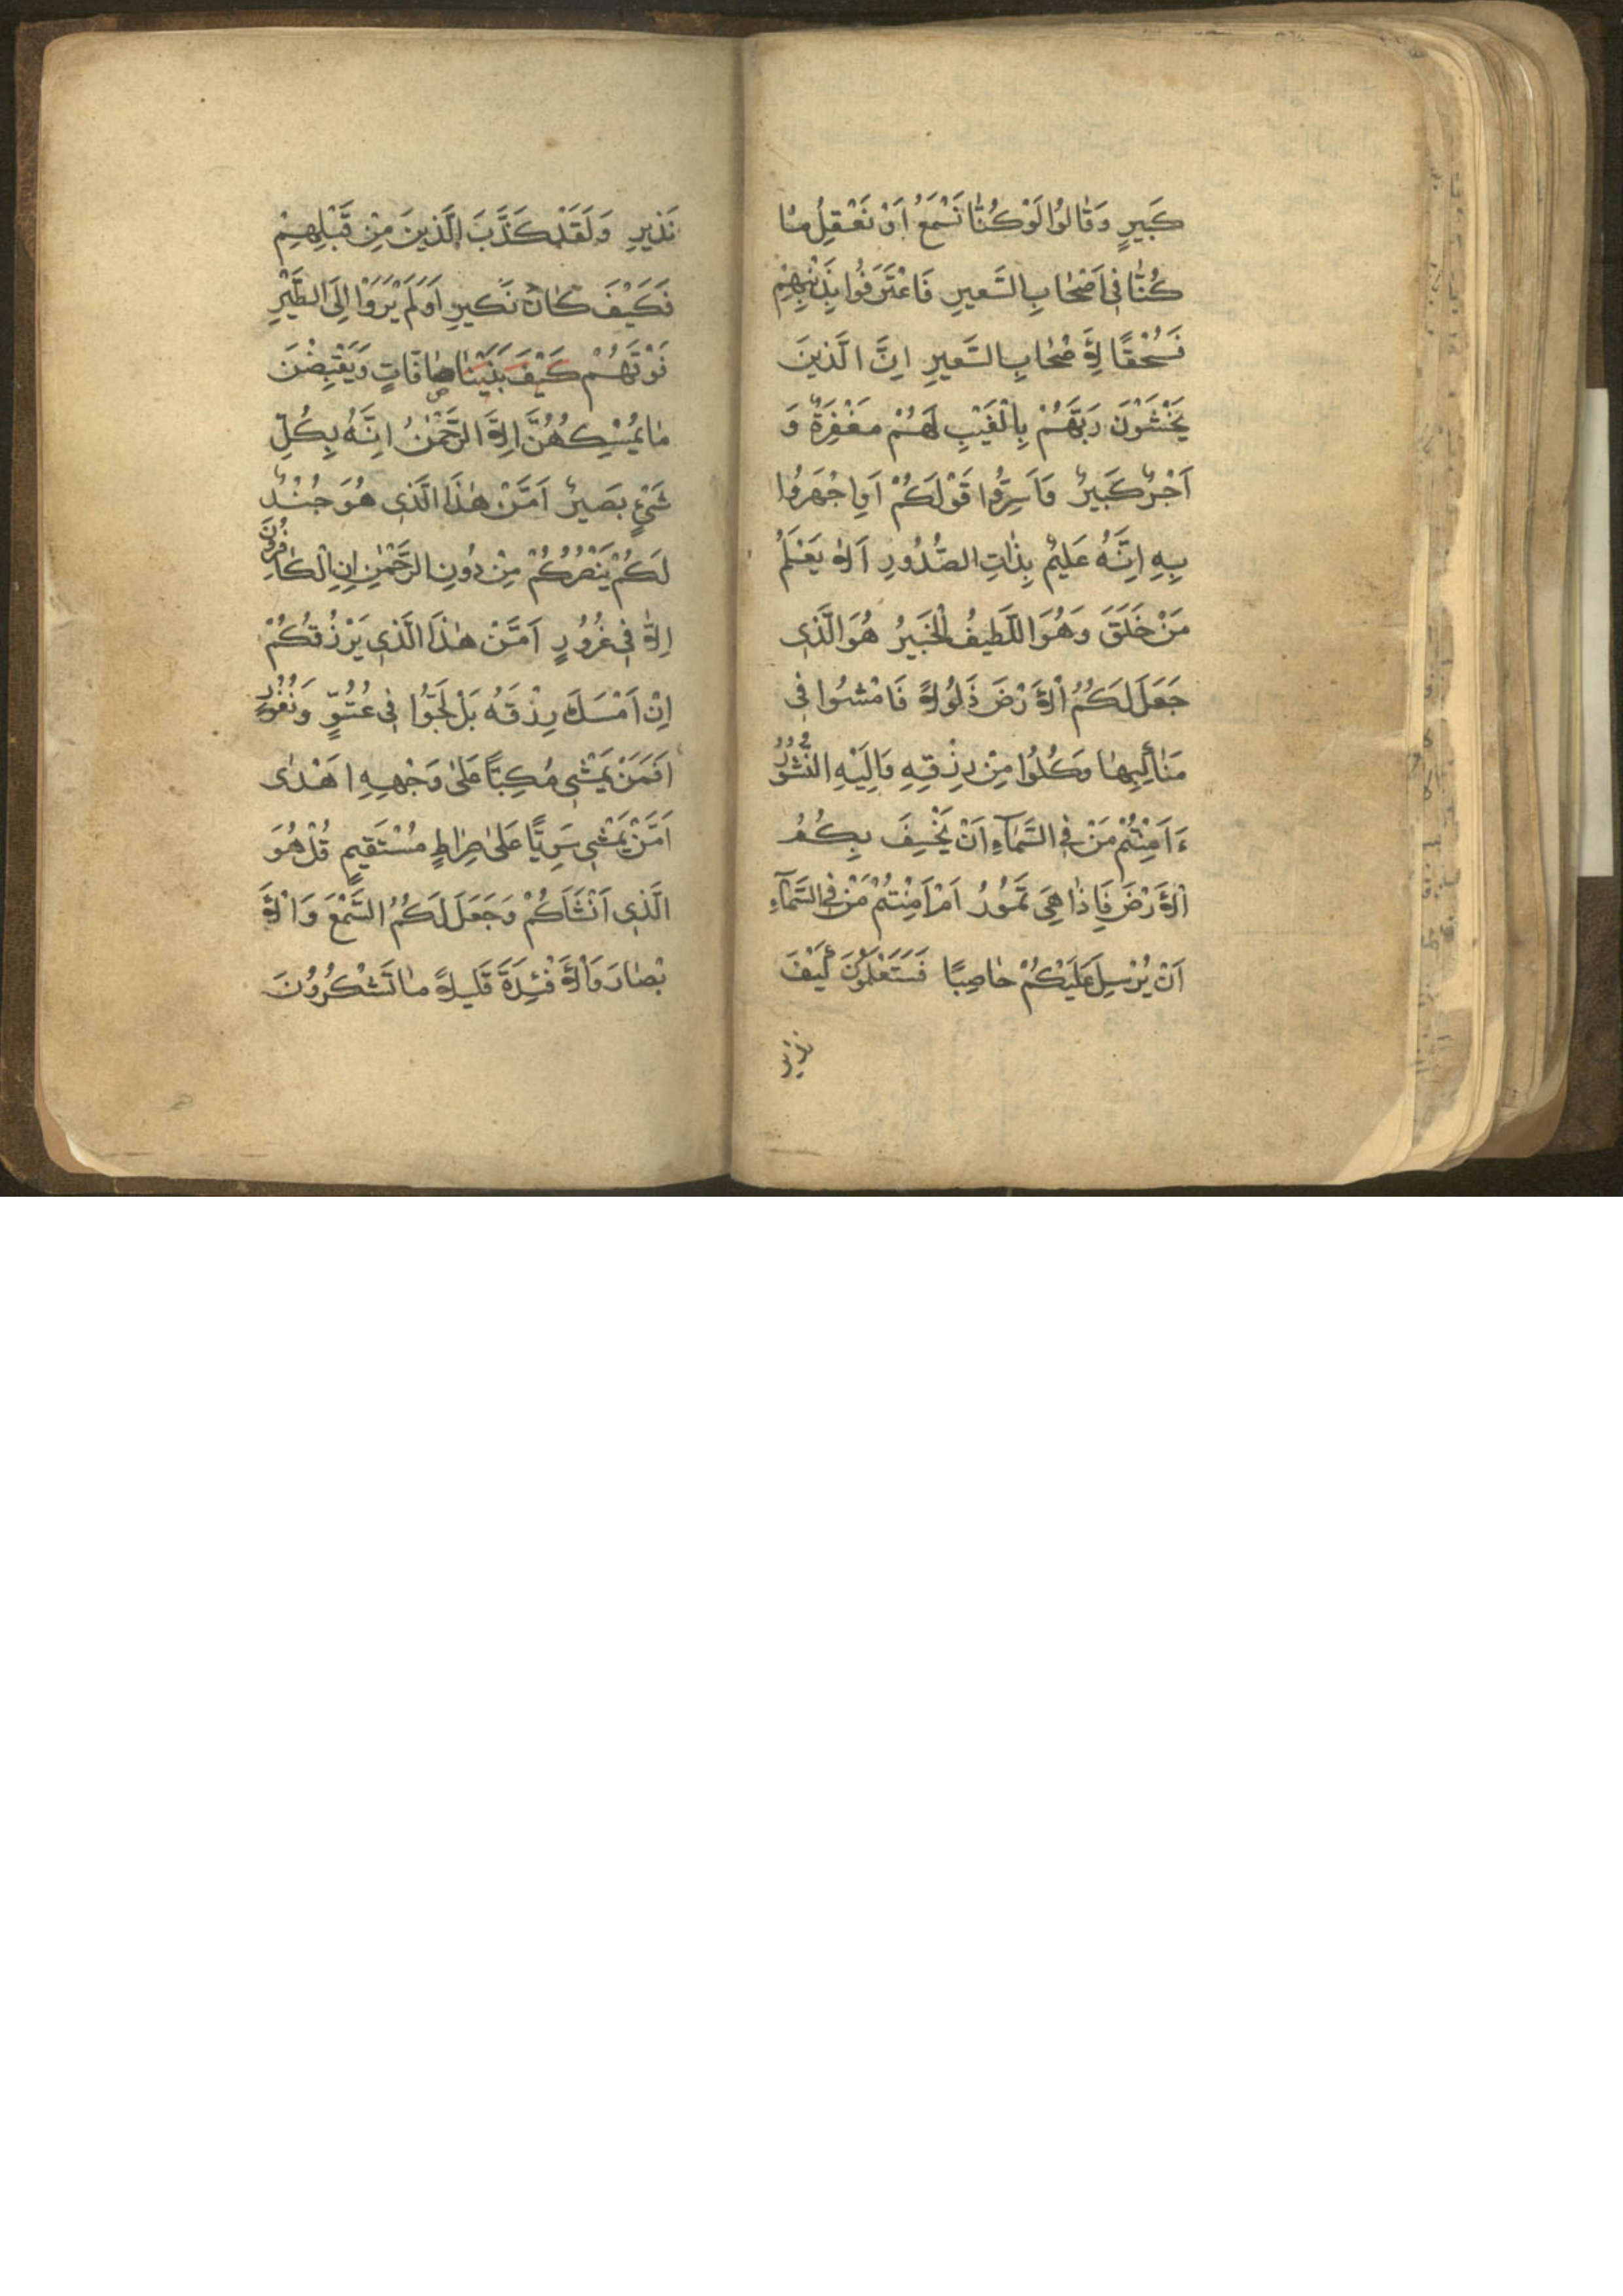 كَبِيرٍ وَقَالُوا لَوْ كُنَّا نَسْمَعُ اَوْ نَعْقِلُ مَا
كُنَّا فِى اَصْحَابِ السَّعِيرِ فَاعْتَرَفُوا بِذَنْبِهِمْ
فَسُحْقًا لِاَصْحَابِ السَّعِيرِ اِنَّ الَّذِينَ
يَخْشَوْنَ رَبَّهُمْ بِالْغَيْبِ لَهُمْ مَغْفِرَةٌ وَ
اَجْرٌ كَبِيرٌ وَاَسِرُّوا قَوْلَكُمْ اَوِ اجْهَرُوا
بِهِ اِنَّهُ عَلِيمٌ بِذَاتِ الصُّدُورِ اَلَا يَعْلَمُ
مَنْ خَلَقَ وَهُوَ اللَّطِيفُ الْخَبِيرُ هُوَ الَّذِى
جَعَلَ لَكُمُ الْاَرْضَ ذَلُولًا فَامْشُوا فِى
مَنَاكِبِهَا وَكُلُوا مِنْ رِزْقِهِ وَاِلَيْهِ النُّشُورُ
ءَاَمِنْتُمْ مَنْ فِى السَّمَآءِ اَنْ يَخْسِفَ بِكُمُ
الْاَرْضَ فَاِذَا هِىَ تَمُورُ اَمْ اَمِنْتُمْ مَنْ فِى السَّمَآءِ
اَنْ يُرْسِلَ عَلَيْكُمْ حَاصِبًا فَسَتَعْلَمُونَ كَيْفَ
نذير
نَذِيرِ وَلَقَدْ كَذَّبَ الَّذِينَ مِنْ قَبْلِهِمْ
فَكَيْفَ كَانَ نَكِيرِ اَوَلَمْ يَرَوْا اِلَى الطَّيْرِ
فَوْقَهُمْ كَيْفَ بَنَيْنَاهَا صَافَّاتٍ وَيَقْبِضْنَ
مَا يُمْسِكُهُنَّ اِلَّا الرَّحْمٰنُ اِنَّهُ بِكُلِّ
شَىْءٍ بَصِيرٌ اَمَّنْ هٰذَا الَّذِى هُوَ جُنْدٌ
لَكُمْ يَنْصُرُكُمْ مِنْ دُونِ الرَّحْمٰنِ اِنِ الْكَافِرُونَ
اِلَّا فِى غُرُورٍ اَمَّنْ هٰذَا الَّذِى يَرْزُقُكُمْ
اِنْ اَمْسَكَ رِزْقَهُ بَلْ لَجُّوا فِى عُتُوٍّ وَنُفُورٍ
اَفَمَنْ يَمْشِى مُكِبًّا عَلٰى وَجْهِهِ اَهْدٰى
اَمَّنْ يَمْشِى سَوِيًّا عَلٰى صِرَاطٍ مُسْتَقِيمٍ قُلْ هُوَ
الَّذِى اَنْشَاَكُمْ وَجَعَلَ لَكُمُ السَّمْعَ وَالْاَ
بْصَارَ وَالْاَفْئِدَةَ قَلِيلًا مَا تَشْكُرُونَ